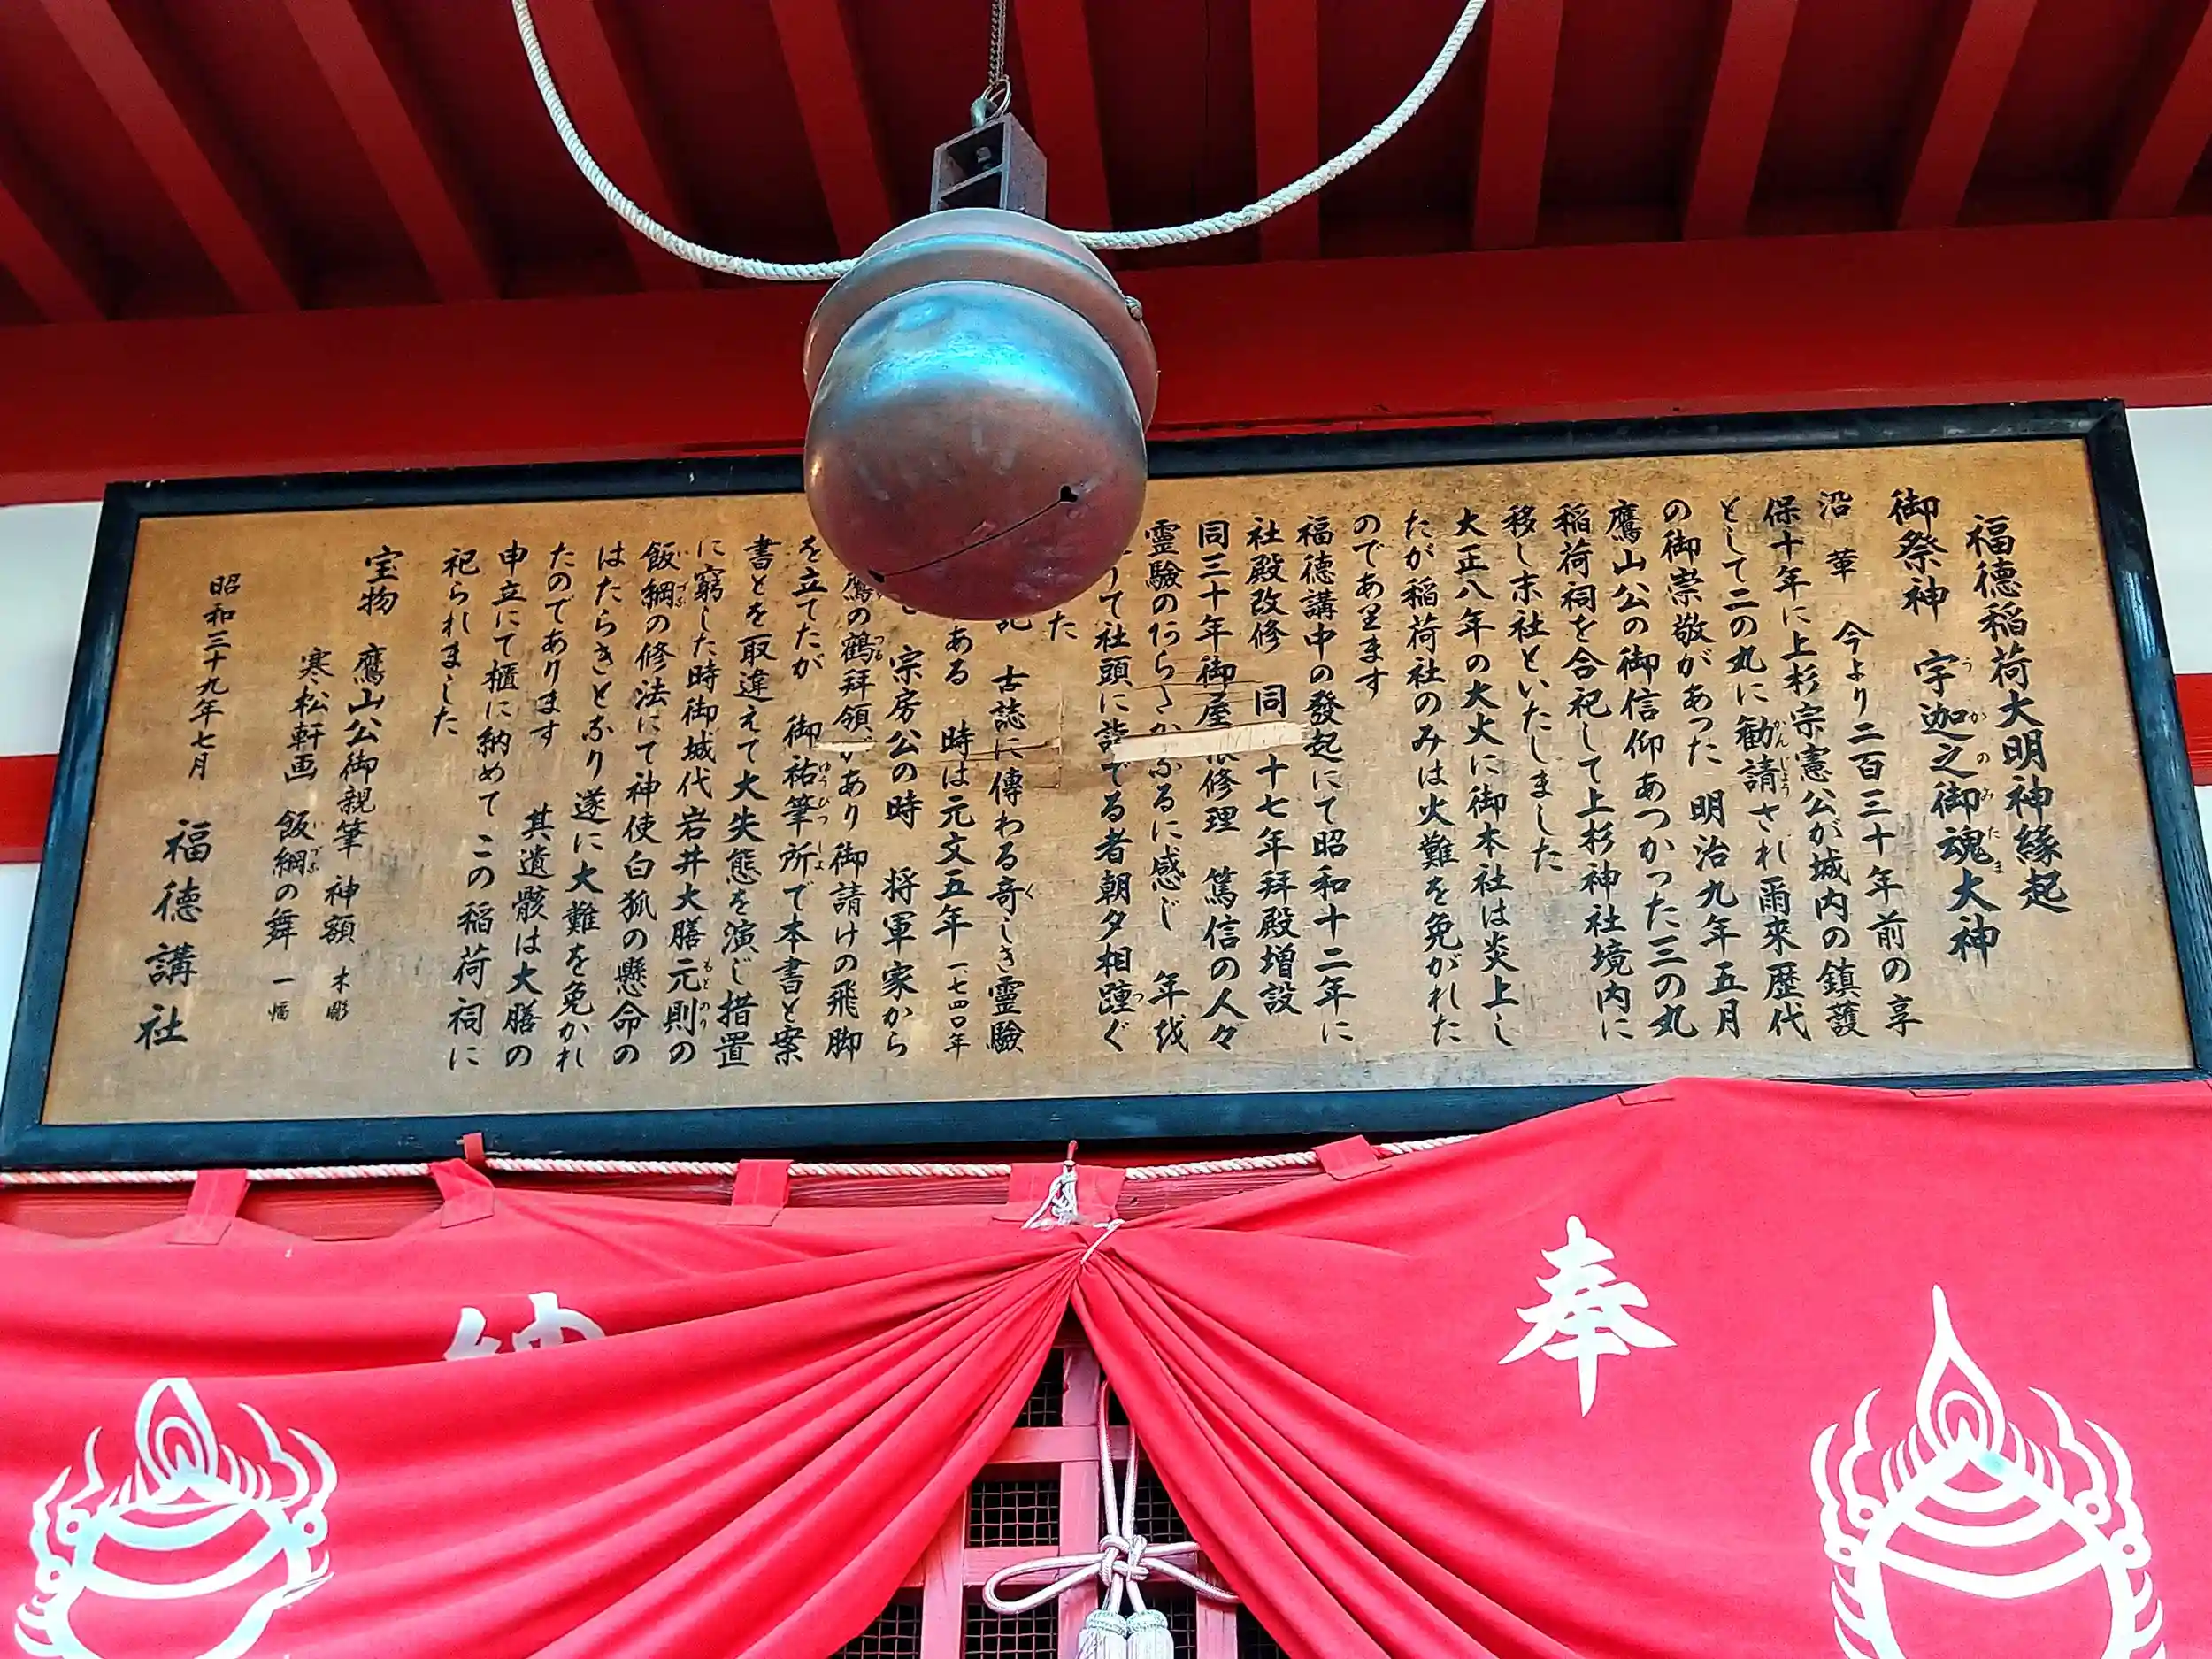 福徳稲荷大明神縁起
御祭神 宇迦之御魂大神
沿革 今より二百三十年前の享
保十年に上杉宗憲公が城内の鎮護
として二の丸に勧請され爾來歴代
の御崇敬があった 明治九年五月
鷹山公の御信仰あつかった三の丸
稲荷祠を合祀して上杉神社境内に
移し末社といたしました
大正八年の大火に御本社は炎上し
たが稲荷社のみは火難を免がれた
のであります
福徳講中の發起にて昭和十二年に
社殿改修 同 十七年拜殿増設
同三十年御屋根修理 篤信の人々
霊驗の かなるに感じ 年 
りて社頭に詣でる者朝夕相踵ぐ
た
記 古誌に傳わる奇しき霊驗
ある 時は元文五年 一、七四〇年
宗房公の時 将軍家から
鷹の鶴拜領があり御請けの飛脚
を立てたが 御祐筆所で本書と案
書とを取違えて大失態を演じ措置
に窮した時御城代岩井大膳元則の
飯綱の修法にて神使白狐の懸命の
はたらきとなり遂に大難を免かれ
たのであります 其遺骸は大膳の
申立にて櫃に納めてこの稲荷祠に
祀られました
宝物 鷹山公御親筆 神額 木彫
寒松軒画 飯綱の舞 一幅
昭和三十九年七月 福徳講社
奉